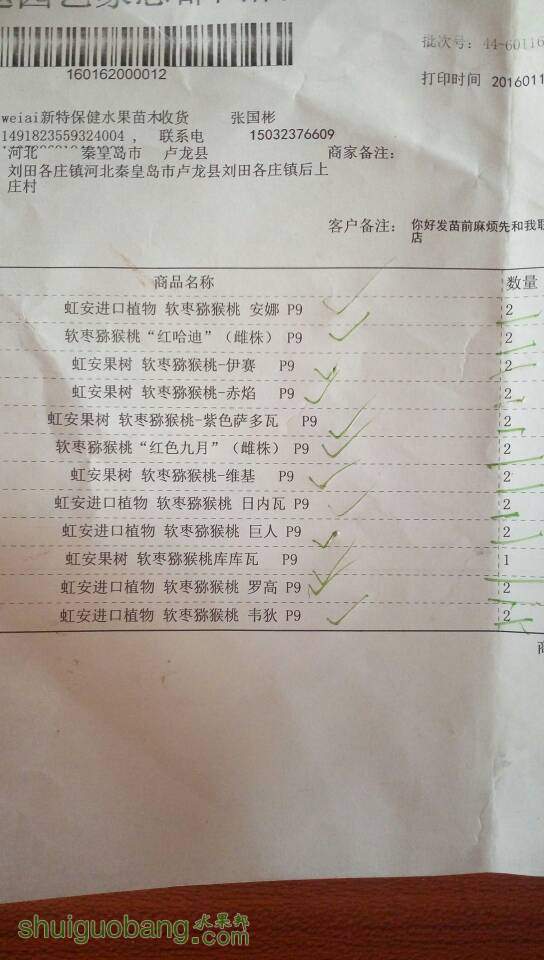 批次号: 44-60116
160162000012
打印时间 2016011
weiai新特保健水果苗木收货 张国彬
1491823559324004 , 联系电 15032376609
河北 秦皇岛市 卢龙县 商家备注:
刘田各庄镇河北秦皇岛市卢龙县刘田各庄镇后上
庄村
客户备注: 你好发苗前麻烦先和我联
店
商品名称 数量
虹安进口植物 软枣猕猴桃 安娜 P9 2
软枣猕猴桃“红哈迪”（雌株） P9 2
虹安果树 软枣猕猴桃-伊赛 P9 2
虹安果树 软枣猕猴桃-赤焰 P9 2
虹安果树 软枣猕猴桃-紫色萨多瓦 P9 2
软枣猕猴桃“红色九月”（雌株） P9 2
虹安果树 软枣猕猴桃-维基 P9 2
虹安进口植物 软枣猕猴桃 日内瓦 P9 2
虹安进口植物 软枣猕猴桃 巨人 P9 2
虹安果树 软枣猕猴桃库库瓦 P9 1
虹安进口植物 软枣猕猴桃 罗高 P9 2
虹安进口植物 软枣猕猴桃 韦狄 P9 2
shuiguobang.com 水果邦